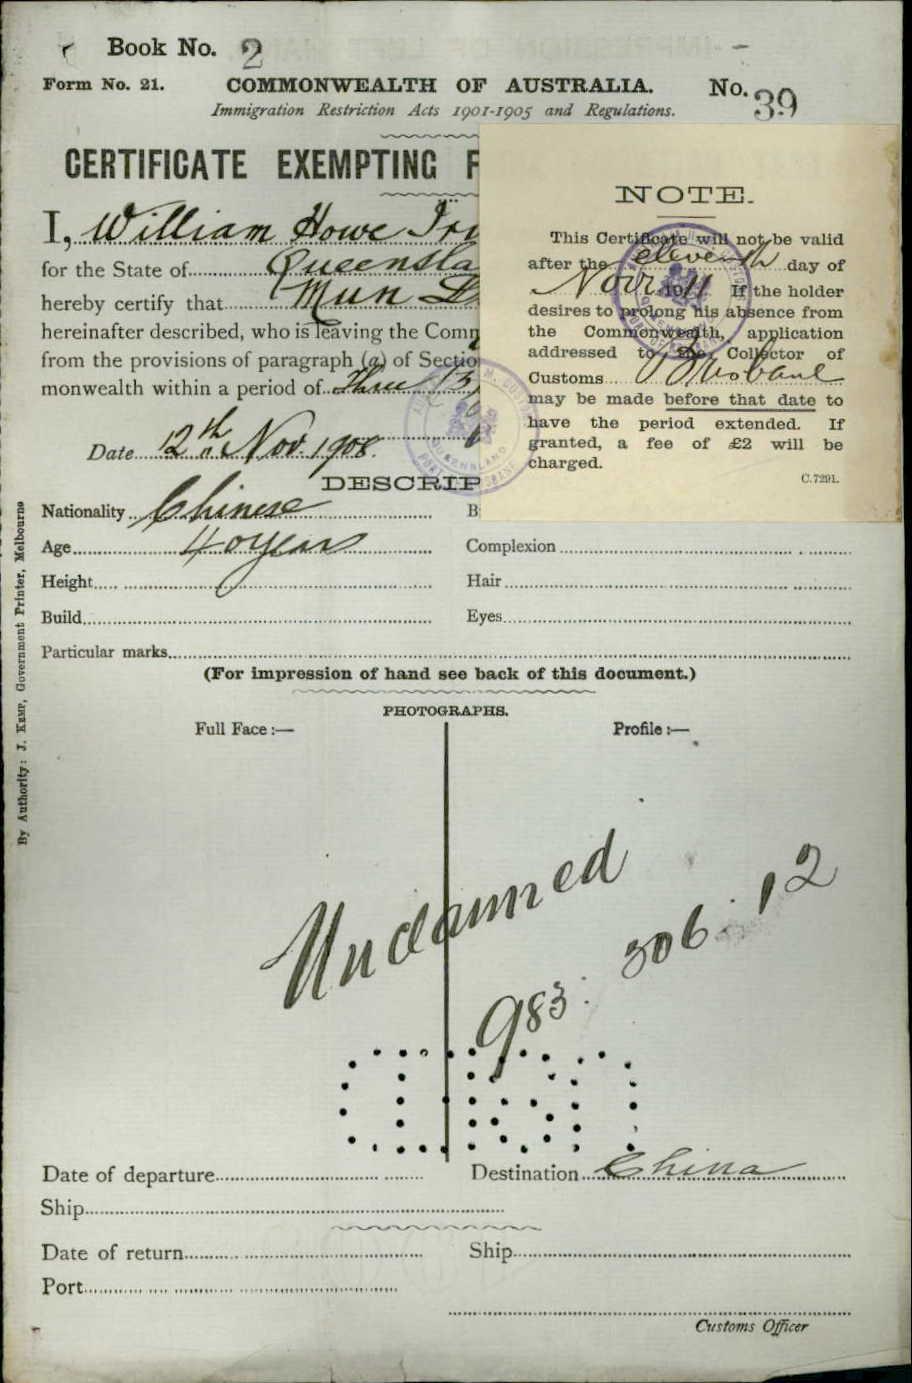 Book No. 2
Form No. 21. COMMONWEALTH OF AUSTRALIA. No. 39
Immigration Restriction Acts 1901-1905 and Regulations.
CERTIFICATE EXEMPTING F
I, William Howe Irv
for the State of Queensla
hereby certify that Mun L
hereinafter described, who is leaving the Comm
from the provisions of paragraph (a) of Sectio
monwealth within a period of Three (3)
Date 12th Nov. 1908.
DESCRIP
NOTE.
This Certificate will not be valid
after the eleventh day of
Novr 1911 If the holder
desires to prolong his absence from
the Commonwealth, application
addressed to the Collector of
Customs Brisbane
may be made before that date to
have the period extended. If
granted, a fee of £2 will be
charged.
C.7291.
Nationality Chinese B
Age 40 years Complexion
Height Hair
Build Eyes
Particular marks
(For impression of hand see back of this document.)
PHOTOGRAPHS.
Full Face :— Profile :—
Unclaimed
983. 306. 12
Date of departure Destination China
Ship
Date of return Ship
Port
Customs Officer
By Authority: J. Kemp, Government Printer, Melbourne